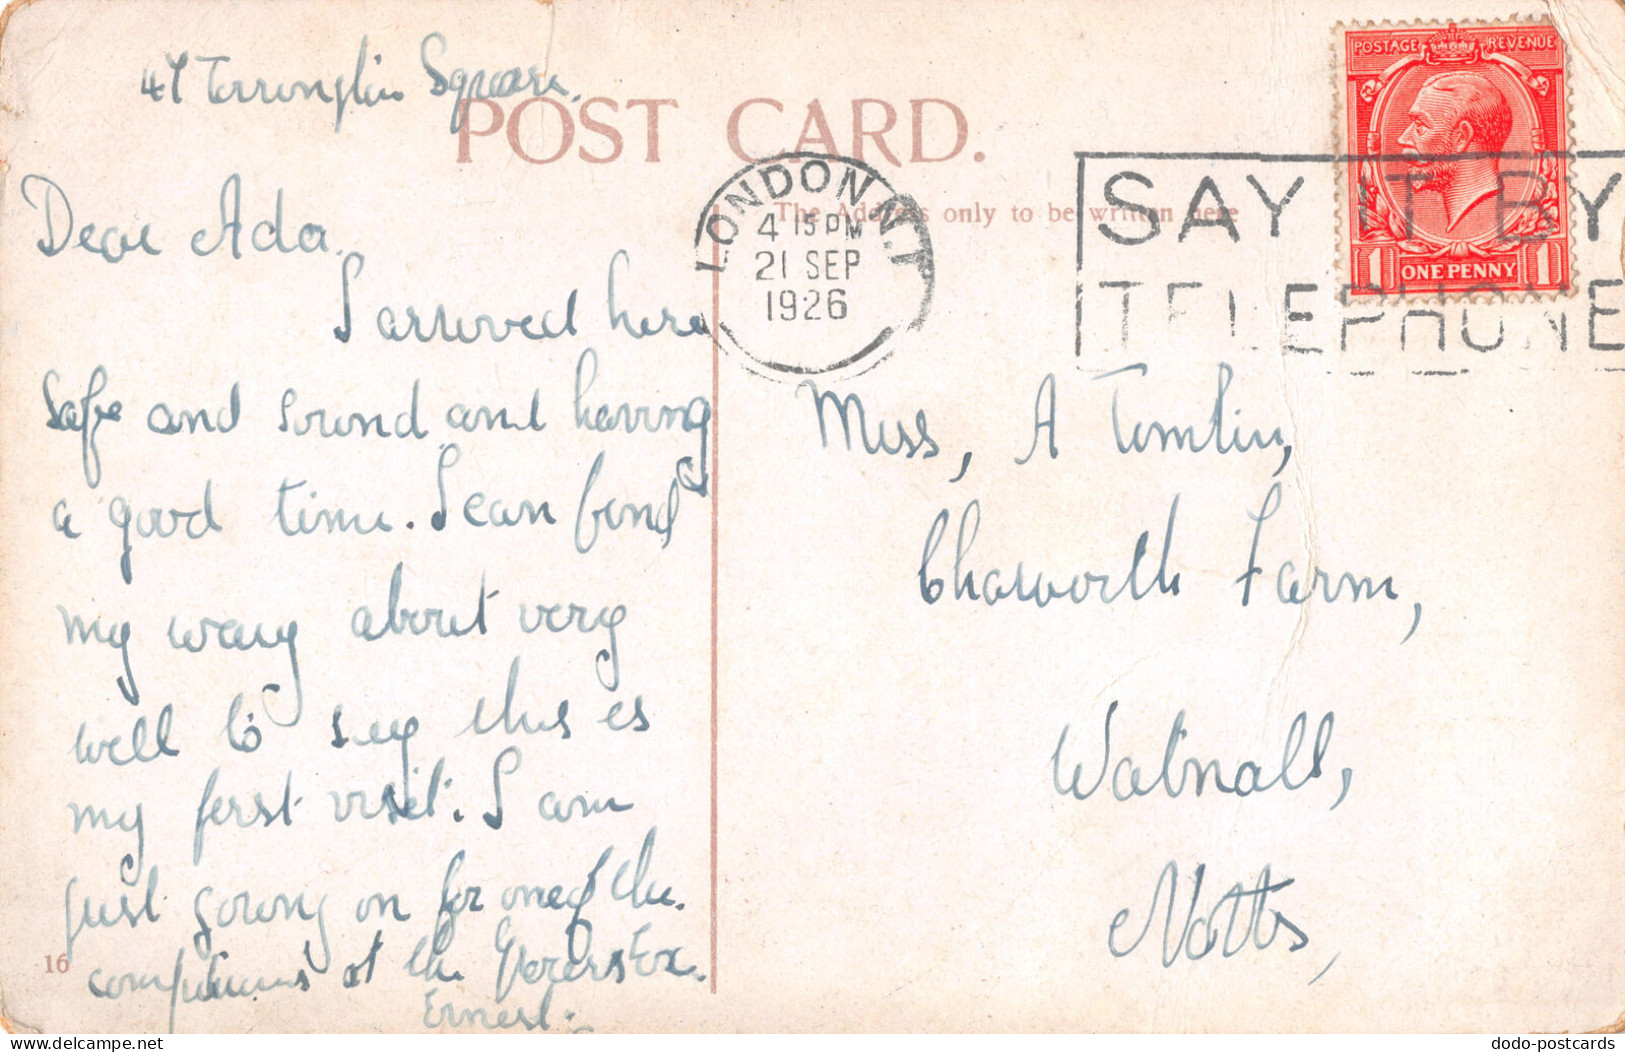 47 Torrington Square.
POST CARD.
The Address only to be written here
LONDON N.1
4 15 PM
21 SEP
1926
SAY IT BY
TELEPHONE
POSTAGE REVENUE
1 ONE PENNY 1
Dear Ada.
I arrived here
safe and sound and having
a good time. I can find
my way about very
well to say this is
my first visit. I am
just going on for one of the
at the Ex.
Ernest.
16
Miss, A Tomlin,
Chaworth Farm,
Watnall,
Notts,
dodo-postcards